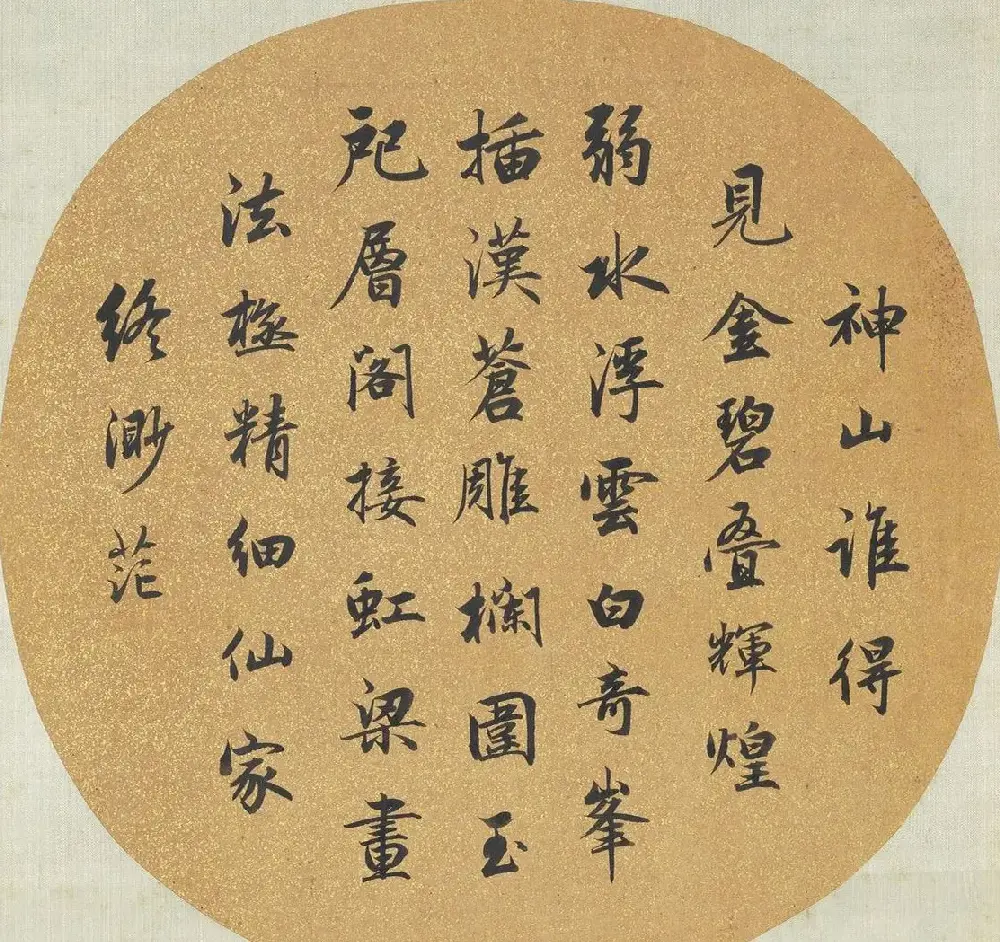 神山誰得
見金碧疊輝煌
弱水浮雲白奇峯
插漢蒼雕欄圍玉
戺層閣接虹梁畫
法極精細仙家
終渺茫